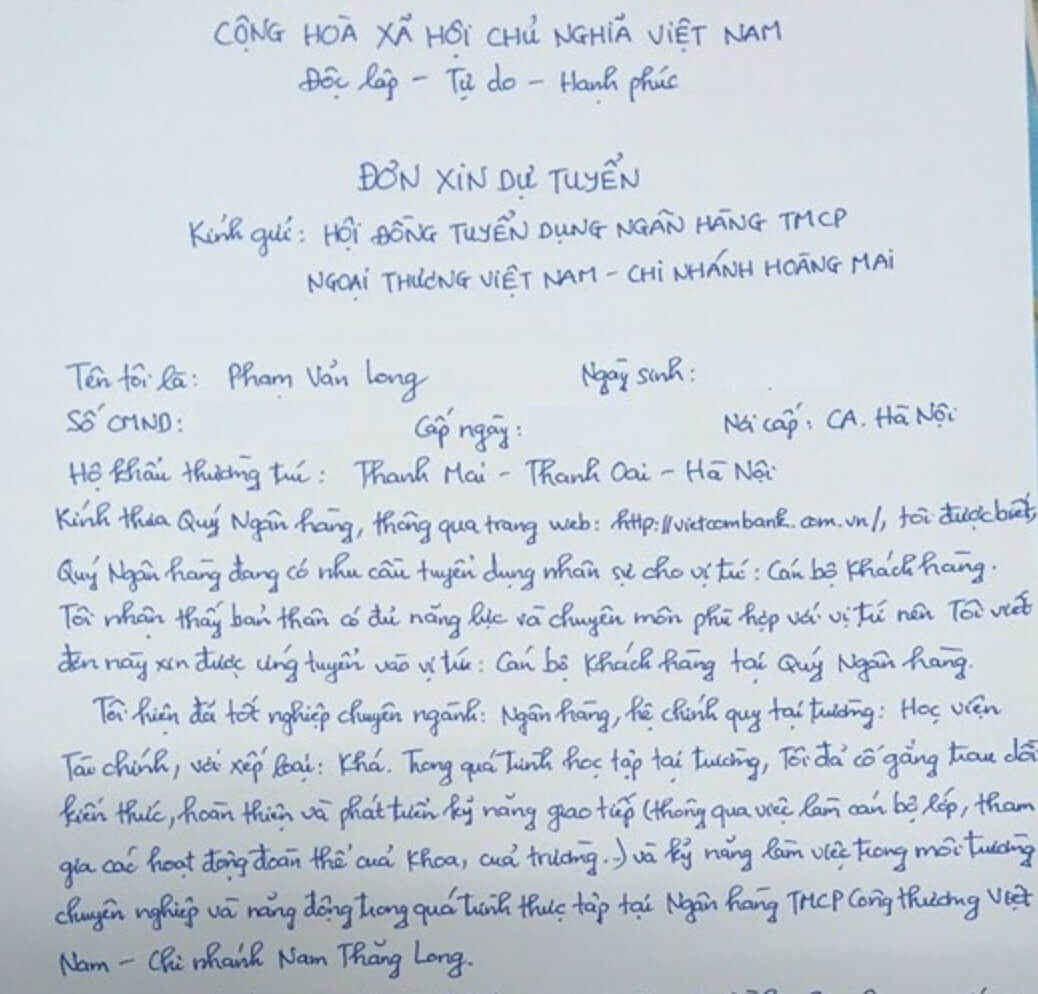 CỘNG HOÀ XÃ HỘI CHỦ NGHĨA VIỆT NAM
Độc lập - Tự do - Hạnh phúc
ĐƠN XIN DỰ TUYỂN
Kính gửi: HỘI ĐỒNG TUYỂN DỤNG NGÂN HÀNG TMCP
NGOẠI THƯƠNG VIỆT NAM - CHI NHÁNH HOÀNG MAI
Tên tôi là: Phạm Văn Long Ngày sinh:
Số CMND: Cấp ngày: Nơi cấp: CA. Hà Nội
Hộ khẩu thường trú: Thanh Mai - Thanh Oai - Hà Nội
Kính thưa Quý Ngân hàng, thông qua trang web: http://vietcombank.com.vn/, tôi được biết,
Quý Ngân hàng đang có nhu cầu tuyển dụng nhân sự cho vị trí: Cán bộ Khách hàng.
Tôi nhận thấy bản thân có đủ năng lực và chuyên môn phù hợp với vị trí nên Tôi viết
đơn này xin được ứng tuyển vào vị trí: Cán bộ Khách hàng tại Quý Ngân hàng.
Tôi hiện đã tốt nghiệp chuyên ngành: Ngân hàng, hệ chính quy tại trường: Học viện
Tài chính, với xếp loại: Khá. Trong quá trình học tập tại trường, Tôi đã cố gắng trau dồi
kiến thức, hoàn thiện và phát triển kỹ năng giao tiếp (thông qua việc làm cán bộ lớp, tham
gia các hoạt động đoàn thể của Khoa, của trường.) và kỹ năng làm việc trong môi trường
chuyên nghiệp và năng động trong quá trình thực tập tại Ngân hàng TMCP Công thương Việt
Nam - Chi nhánh Nam Thăng Long.